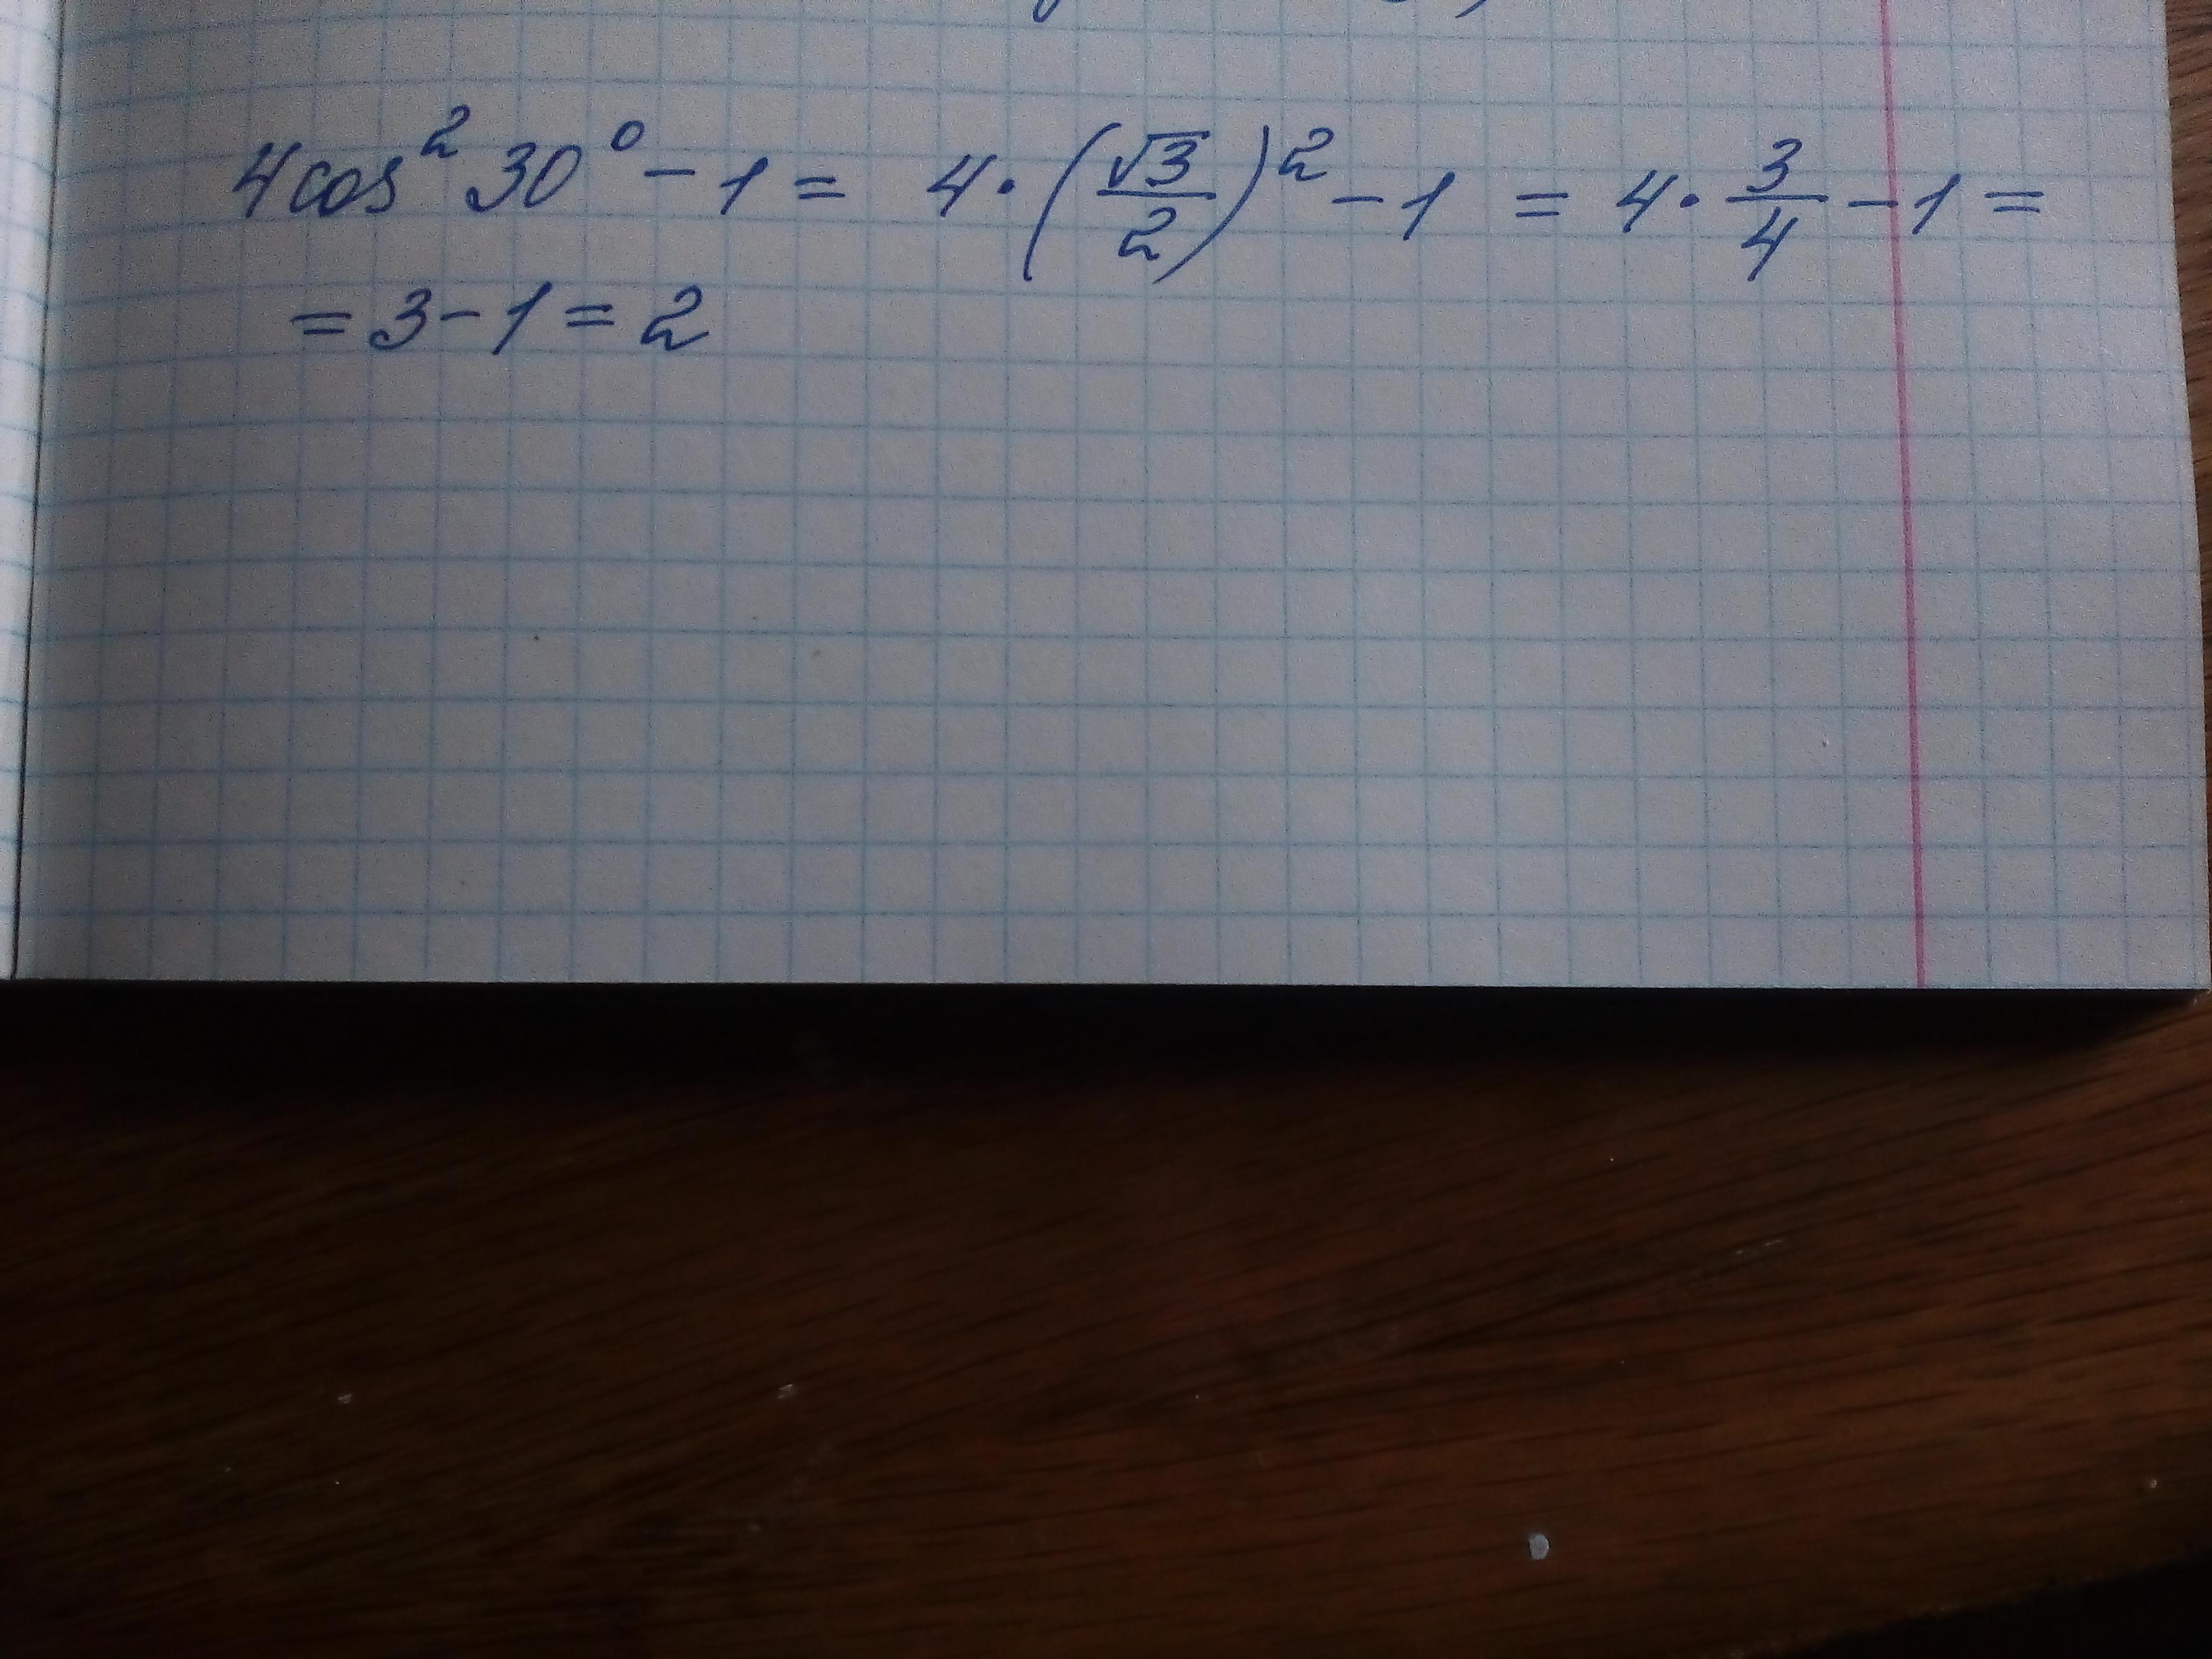 4cos² 30° - 1 = 4 · (√3/2)² - 1 = 4 · 3/4 - 1 =
= 3 - 1 = 2